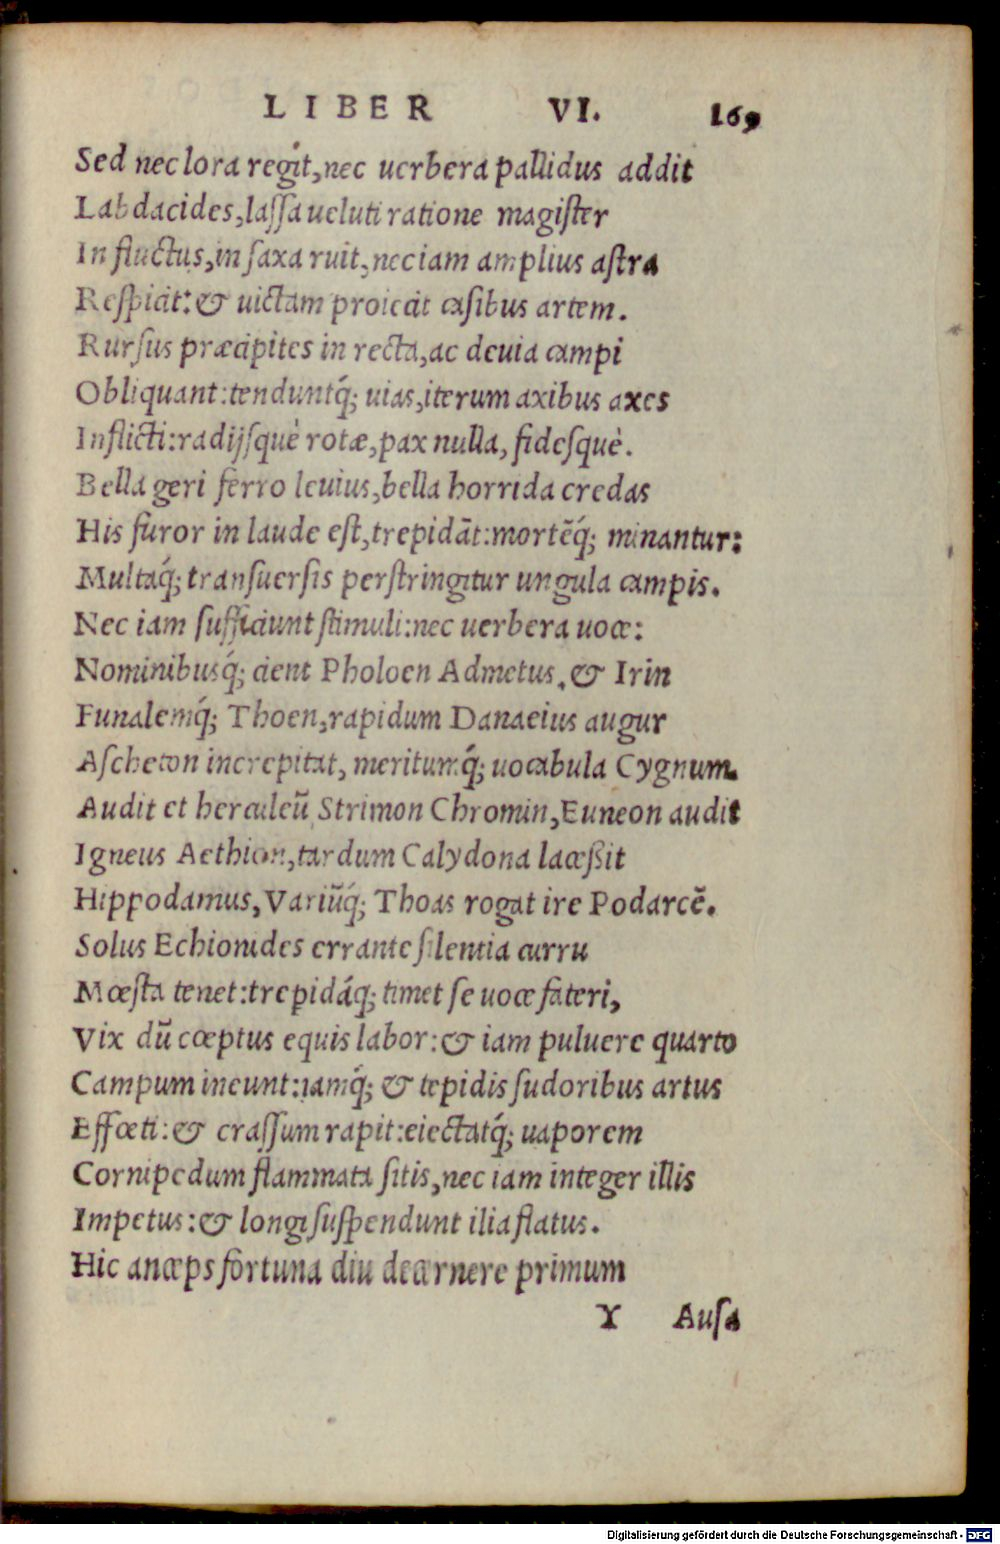 LIBER VI. 169
Sed nec lora regit, nec uerbera pallidus addit
Labdacides, laſſa ueluti ratione magiſter
In fluctus, in ſaxa ruit, nec iam amplius aſtra
Reſpicit: & uictam proiecit caſibus artem.
Rurſus præcipites in recta, ac deuia campi
Obliquant: tenduntq́; uias, iterum axibus axes
Inflicti: radijſquè rotæ, pax nulla, fideſquè.
Bella geri ferro leuius, bella horrida credas
His furor in laude eſt, trepidāt: mortēq́; minantur:
Multaq́; tranſuerſis perſtringitur ungula campis.
Nec iam ſufficiunt ſtimuli: nec uerbera uoce:
Nominibusq́; cient Pholoen Admetus, & Irin
Funalemq́; Thoen, rapidum Danaeius augur
Aſcheton increpitat, meritumq́; uocabula Cygnum.
Audit et herculeū Strimon Chromin, Euneon audit
Igneus Aethion, tardum Calydona laceßit
Hippodamus, Variūq́; Thoas rogat ire Podarcē.
Solus Echionides errante ſilentia curru
Mœſta tenet: trepidáq; timet ſe uoce fateri,
Vix dū cœptus equis labor: & iam puluere quarto
Campum ineunt: iamq́; & tepidis ſudoribus artus
Effœti: & craſſum rapit: eiectatq́; uaporem
Cornipedum flammata ſitis, nec iam integer illis
Impetus: & longi ſuſpendunt ilia flatus.
Hic anceps fortuna diu decernere primum
Y Auſa
Digitalisierung gefördert durch die Deutsche Forschungsgemeinschaft - DFG